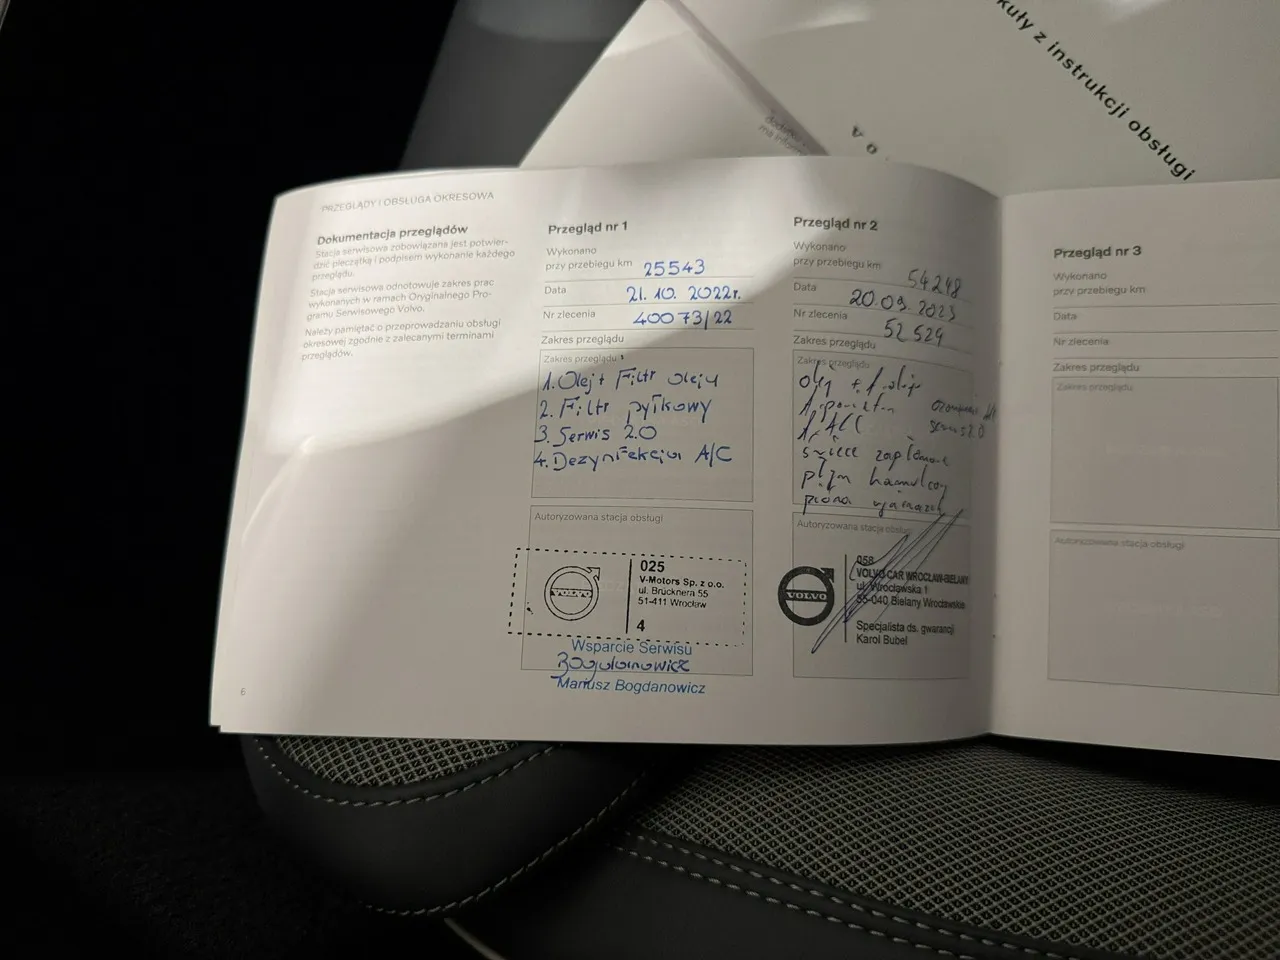 kuły z instrukcji obsługi
PRZEGLĄDY I OBSŁUGA OKRESOWA
Dokumentacja przeglądów
Stacja serwisowa zobowiązana jest potwier-
dzić pieczątką i podpisem wykonanie każdego
przeglądu.
Stacja serwisowa odnotowuje zakres prac
wykonanych w ramach Oryginalnego Pro-
gramu Serwisowego Volvo.
Należy pamiętać o przeprowadzaniu obsługi
okresowej zgodnie z zalecanymi terminami
przeglądów.
6
Przegląd nr 1
Wykonano
przy przebiegu km 25543
Data 21.10.2022r.
Nr zlecenia 40073/22
Zakres przeglądu
Zakres przeglądu
1. Olej + Filtr oleju
2. Filtr pyłkowy
3. Serwis 2.0
4. Dezynfekcja A/C
Autoryzowana stacja obsługi
VOLVO
025
V-Motors Sp. z o.o.
ul. Brücknera 55
51-411 Wrocław
4
Wsparcie Serwisu
Bogdanowicz
Mariusz Bogdanowicz
Przegląd nr 2
Wykonano
przy przebiegu km 54248
Data 20.09.2023
Nr zlecenia 52524
Zakres przeglądu
Zakres przeglądu
olej + f. oleju
świece zapłonowe
płyn hamulcowy
Autoryzowana stacja obsługi
VOLVO
058
VOLVO CAR WROCŁAW-BIELANY
ul. Wrocławska 1
55-040 Bielany Wrocławskie
Specjalista ds. gwarancji
Karol Bubel
Przegląd nr 3
Wykonano
przy przebiegu km
Data
Nr zlecenia
Zakres przeglądu
Zakres przeglądu
Autoryzowana stacja obsługi